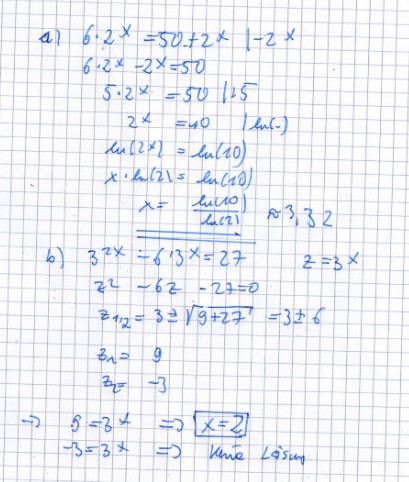 a) 6·2ˣ = 50 + 2ˣ | -2ˣ
6·2ˣ - 2ˣ = 50
5·2ˣ = 50 | :5
2ˣ = 10 | ln(·)
ln(2ˣ) = ln(10)
x·ln(2) = ln(10)
x = ln(10)/ln(2) ≈ 3,32
b) 3²ˣ - 6·3ˣ = 27 z = 3ˣ
z² - 6z - 27 = 0
z₁,₂ = 3 ± √(9+27) = 3 ± 6
z₁ = 9
z₂ = -3
→ 9 = 3ˣ ⇒ x = 2
-3 = 3ˣ ⇒ Keine Lösung